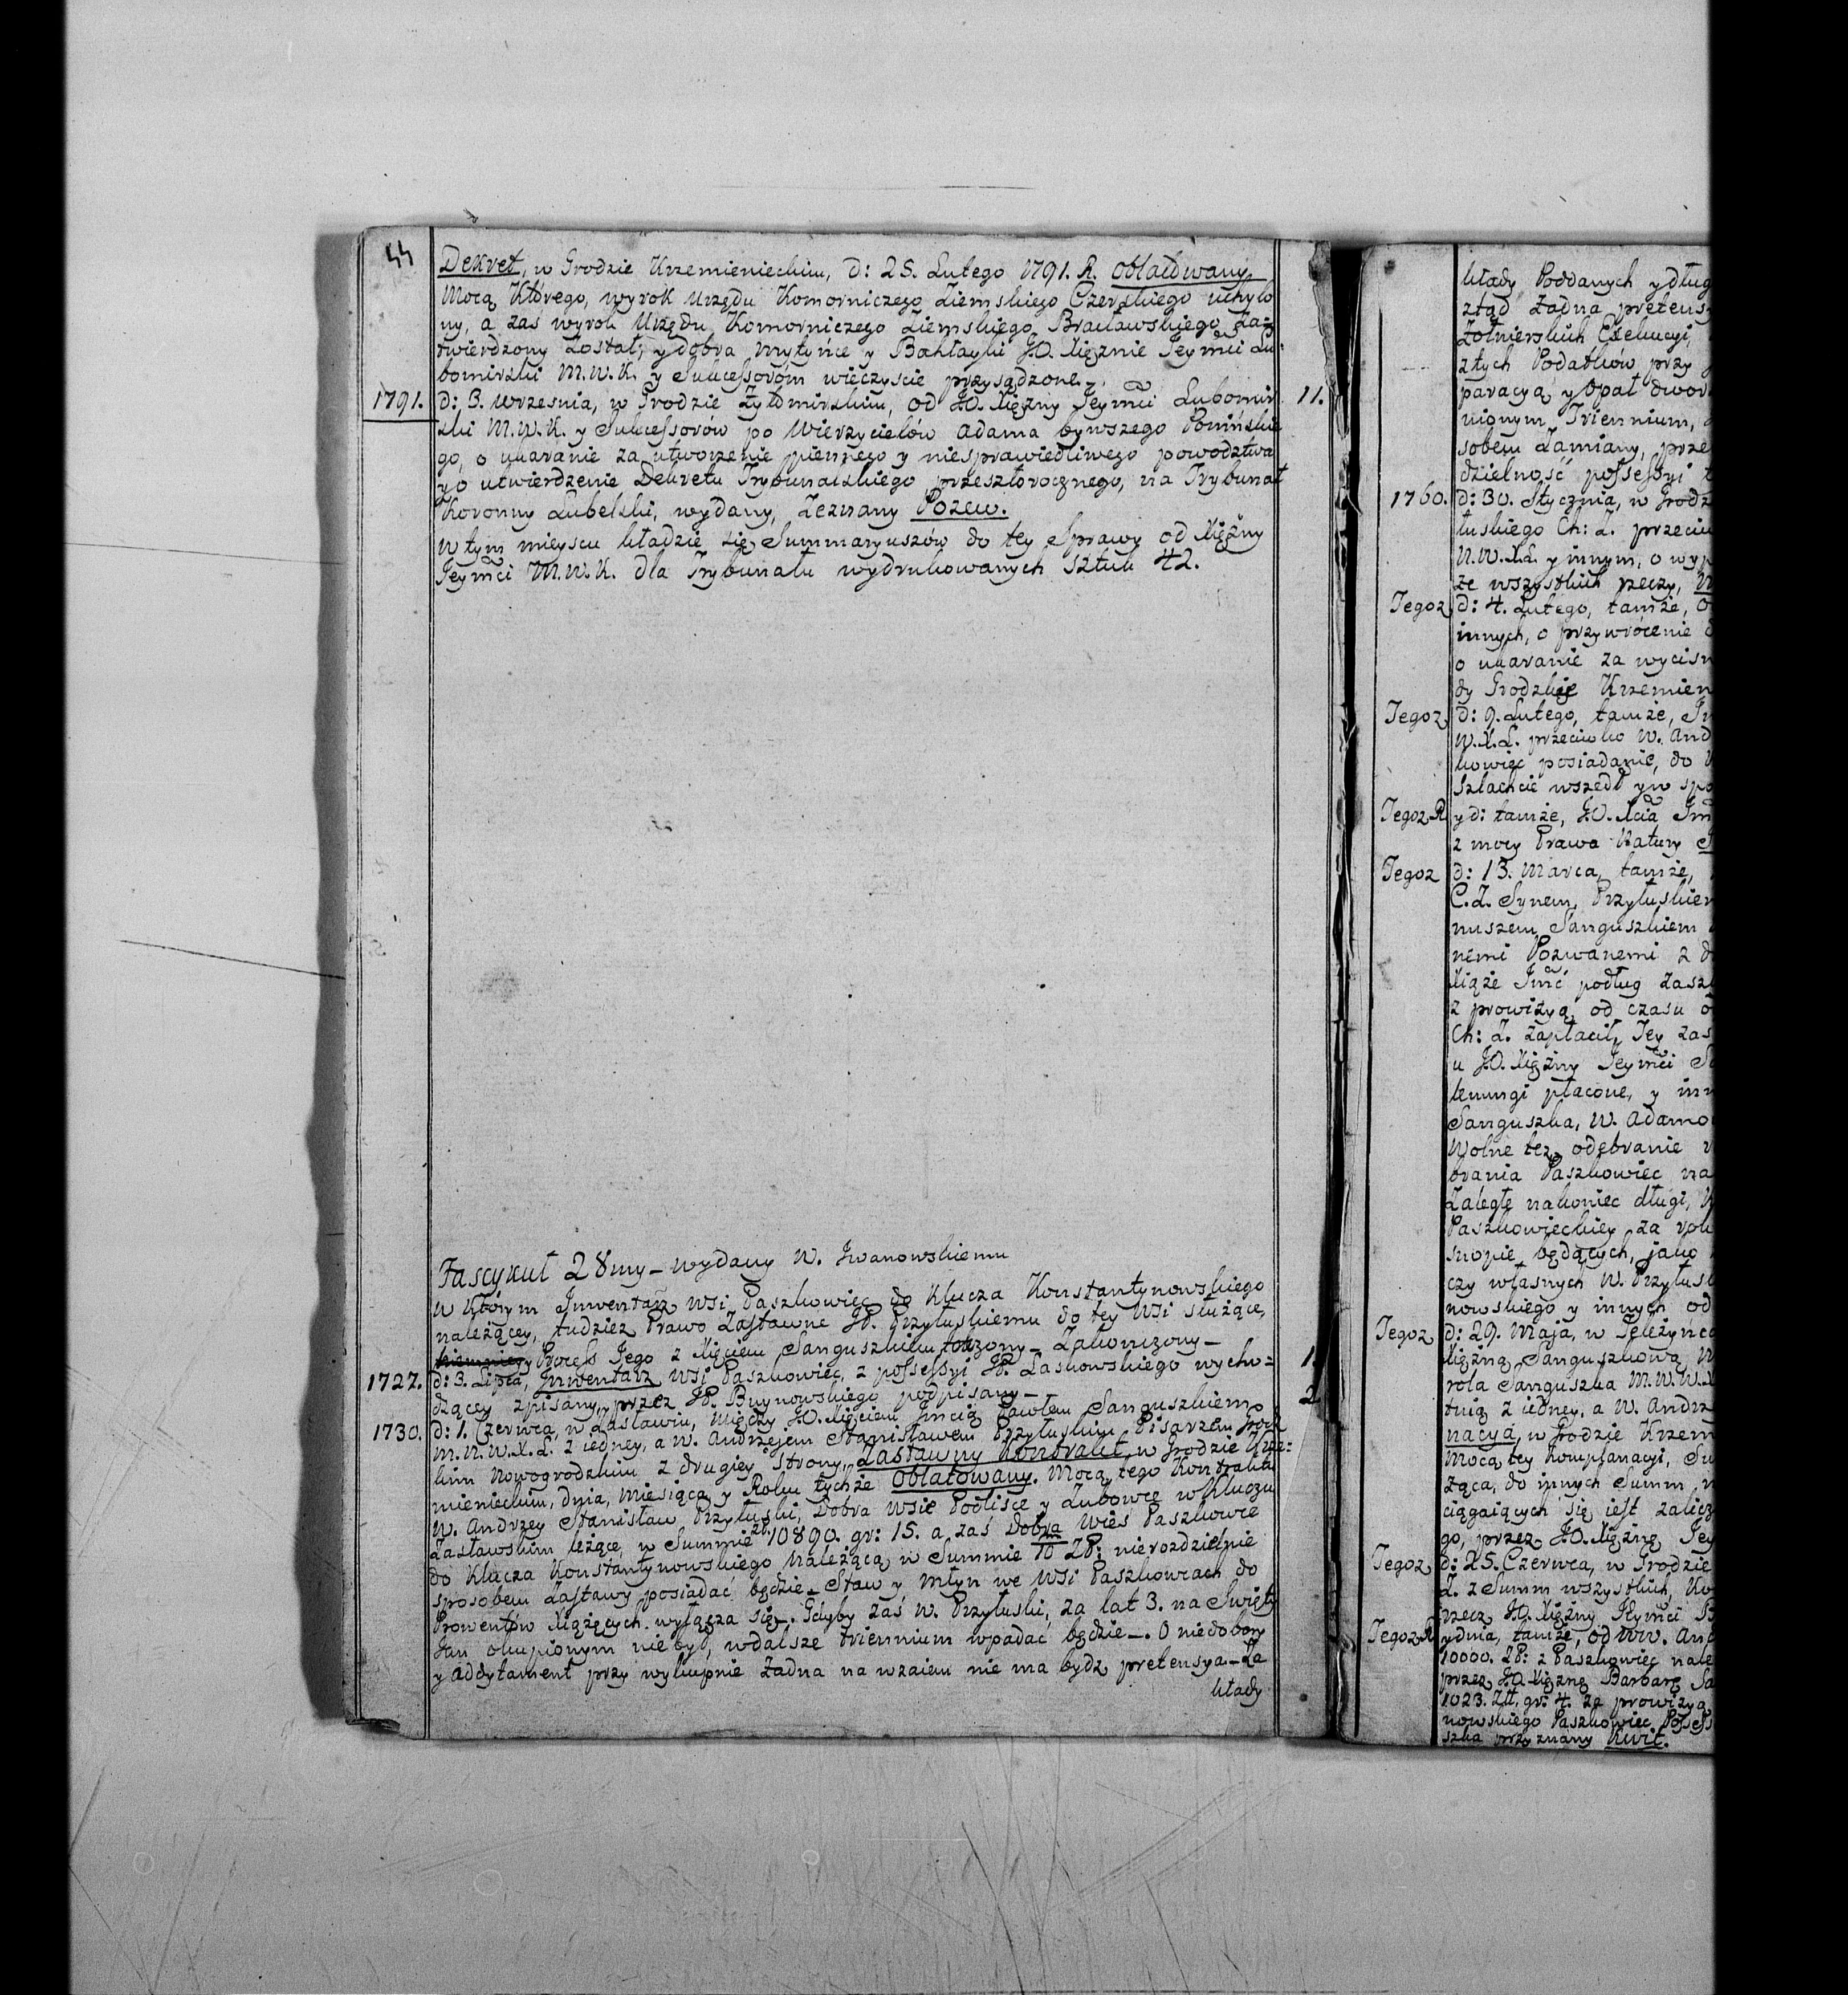 44
Dekret, w Grodzie Krzemienieckim, d: 25. Lutego 1791. R. oblatowany
Mocą Którego, wyrok Urzędu Komorniczego Ziemskiego Czerskiego uchylo
ny, a zaś wyrok Urzędu Komorniczego Ziemskiego Bracławskiego za=
twierdzony został; y dobra Mytyńce y Bahłayki J.O. Xiężnie Jeymci Lu-
bomirski M.W.K. y Sukcessorom wieczyście przysądzone.
1791. d: 3. Września, w Grodzie Żytomirskim, od J.O. Xiężny Jeymci Lubomir 11.
ski M.W.K. y Sukcessorów po Wierzycielów Adama bywszego Ponińskie
go, o ukaranie za utworzenie piennego y niesprawiedliwego powodztwa
y o utwierdzenie Dekretu Trybunalskiego przeszłorocznego, na Trybunał
Koronny Lubelski, wydany, Zeznany Pozew.
W tym mieyscu kładzie się Summaryuszów do tey Sprawy od Xiężny
Jeymci M.W.K. dla Trybunału wydrukowanych sztuk 42.
Fascykuł 28my - wydany W. Iwanowskiemu
W Którym Inwentarz Wsi Paszkowiec do Klucza Konstantynowskiego
należącey, tudziez Prawo Zastawne JP. Przyłuskiemu do tey Wsi służące,
y Process Jego z Xięciem Sanguszkiem toczony - Zakonczony - 1.
1727. d: 3. Lipca, Inwentarz Wsi Paszkowiec, z possessyi JP. Laskowskiego wycho=
dzącey spisany, przez JP. Buynowskiego podpisany - 2
1730. d: 1. Czerwca, w Zasławiu, między J.O. Xięciem Jmcią Pawłem Sanguszkiem
M.N.W.X.L. z iedney, a W. Andrzejem Stanisławem Przyłuskim Pisarzem Grodz
kim Nowogrodzkim z drugiey Strony, Zastawny Kontrakt, w Grodzie Krze=
mienieckim, dnia, miesiąca y Roku tychże Oblatowany. Mocą tego Kontraktu
W. Andrzey Stanisław Przyłuski, Dobra Wsie Podlisce y Zubowce w Kluczu
Zasławskim leżące, w Summie zł: 10890. gr: 15. a zaś dobra Wieś Paszkowce
do Klucza Konstantynowskiego należącą w Summie 10 ZP: nierozdzielnie
sposobem Zastawy posiadać będzie - Staw y Młyn we Wsi Paszkowcach do
Prowentów Xiążęcych wyłącza się. Gdyby zaś W. Przyłuski, za lat 3. na Święty
Jan okupionym nie był, wdalsze triennium wpadać będzie -. O niedobory
y addytament przy wykupnie żadna na wzaiem nie ma bydz pretensya - Za
kłady
kłady Poddanych y dług
ztąd żadna pretens
Żołnierskich Exekucyi,
złych Podatków przy
paracyą y Opał dwor
nionym Triennium,
sobem Zamiany, prze
dzielność possessyi
1760. d: 30. Stycznia, w Grodz
łuskiego Ch: Z. przeciw
N.W.X.L. y innym, o wy
ze wszystkich rzeczy,
Tegoz d: 4. Lutego, tamże,
innych, o przywrócenie
o ukaranie za wycisn
dy Grodzkie Krzemien
Tegoz d: 9. Lutego, tamże,
W.X.L. przeciwko W. And
kowiec posiadanie, do
Szlachcic wszedł y w spo
Tegoz R. y d: tamże, J.O. Xcia Jm
z mocy Prawa Natury
Tegoz d: 13. Marca, tamże,
C.Z. Synem, Przyłuskiem
nuszem Sanguszkiem
nemi Pozwanemi z
Xiąże Jmć podług Zasz
z prowizyą od czasu
Ch: Z. zapłacił, Jey zas
u J.O. Xiężny Jeymci
lenungi płacone, y inn
Sanguszka, W. Adamo
Wolne też odebranie
brania Paszkowiec na
Zaległe nakoniec długi,
Paszkowieckiey za rok
snopie będących, jako
czy własnych W. Przyłus
nowskiego y innych od
Tegoz d: 29. Maja, w
Xiężną Sanguszkową
rola Sanguszka M.W.W.X
tnią z iedney, a W. Andrz
nacyą, w Grodzie Krzem
Mocą tey Komplanacyi, Su
żąca, do innych Summ,
ciągaiących się iest zalicz
go, przez J.O. Xiężnę Jey
Tegoz d: 25. Czerwca, w Grodzie
Z. z Summ wszystkich,
rzecz J.O. Xiężny Jeymci
Tegoz R y dnia, tamże, od WW. And
10000. ZP: z Paszkowiec nale
przez J.O. Xiężnę Barbarę Sa
1023. Złł. gr: 4. za prowizyą
nowskiego Paszkowiec Possess
szka przyznany Kwit.